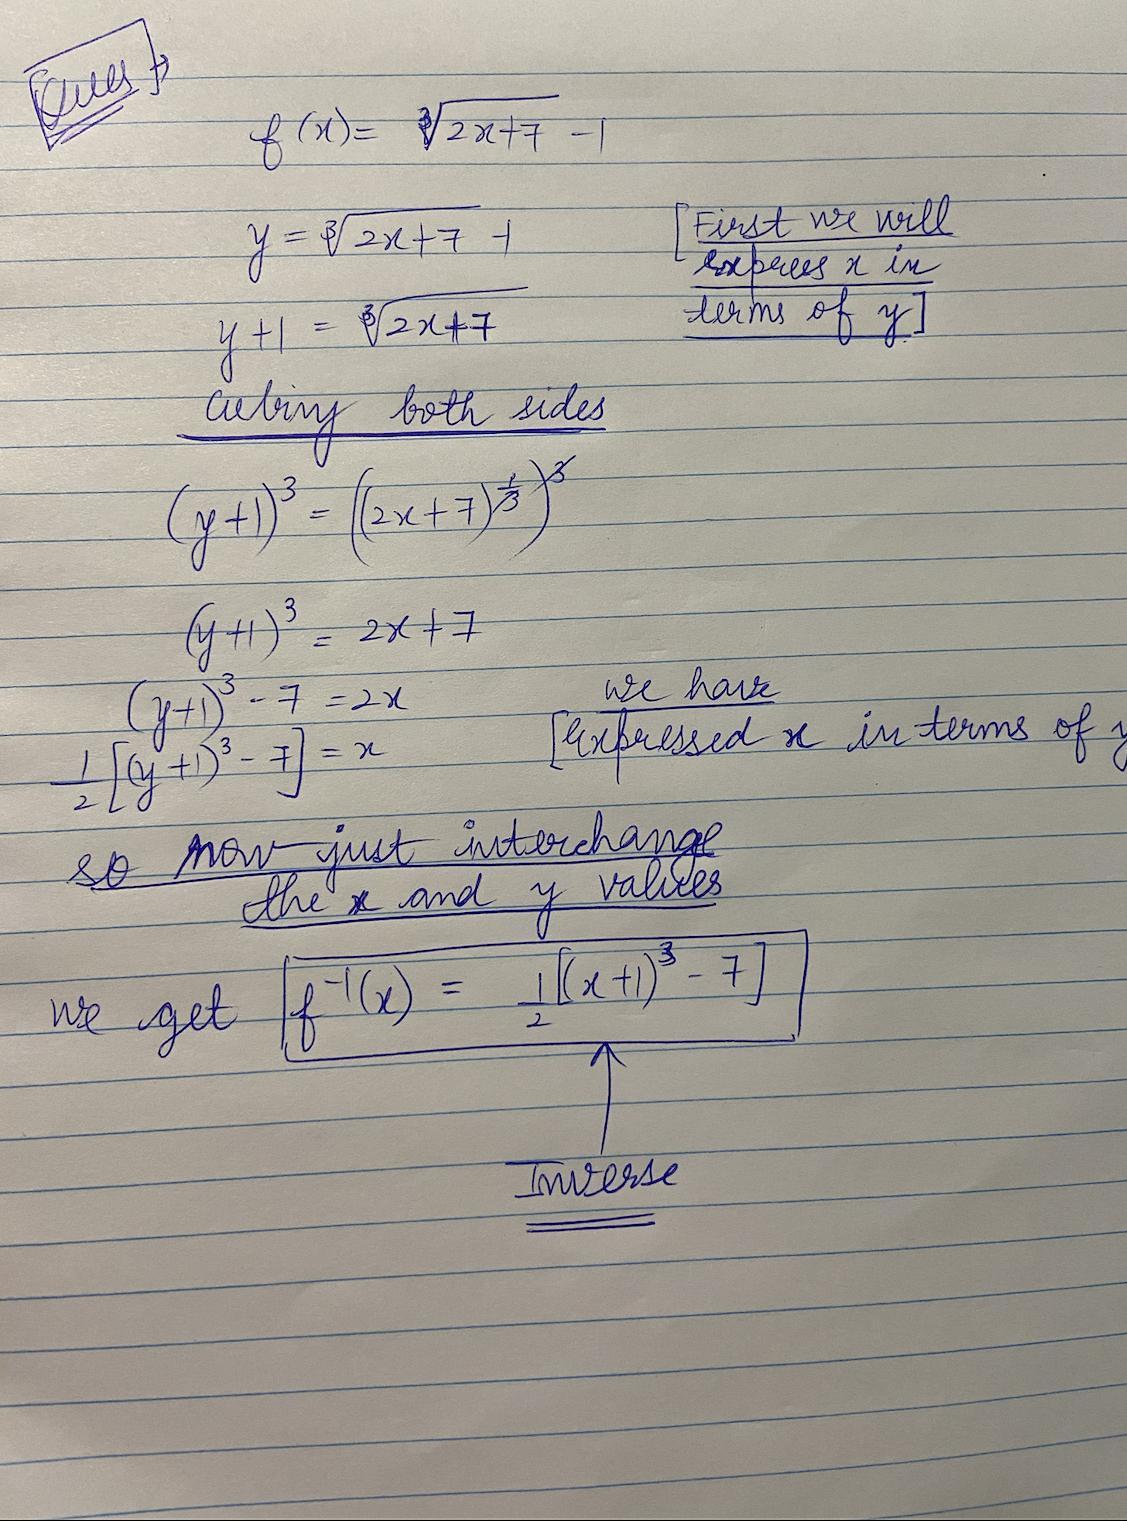 Ques →
f(x) = ∛(2x+7) - 1
y = ∛(2x+7) - 1
[First we will
express x in
terms of y]
y+1 = ∛(2x+7)
cubing both sides
(y+1)³ = ((2x+7)^(1/3))³
(y+1)³ = 2x+7
(y+1)³ - 7 = 2x
we have
[expressed x in terms of y
1/2 [(y+1)³ - 7] = x
so now just interchange
the x and y values
we get f⁻¹(x) = 1/2 [(x+1)³ - 7]
Inverse